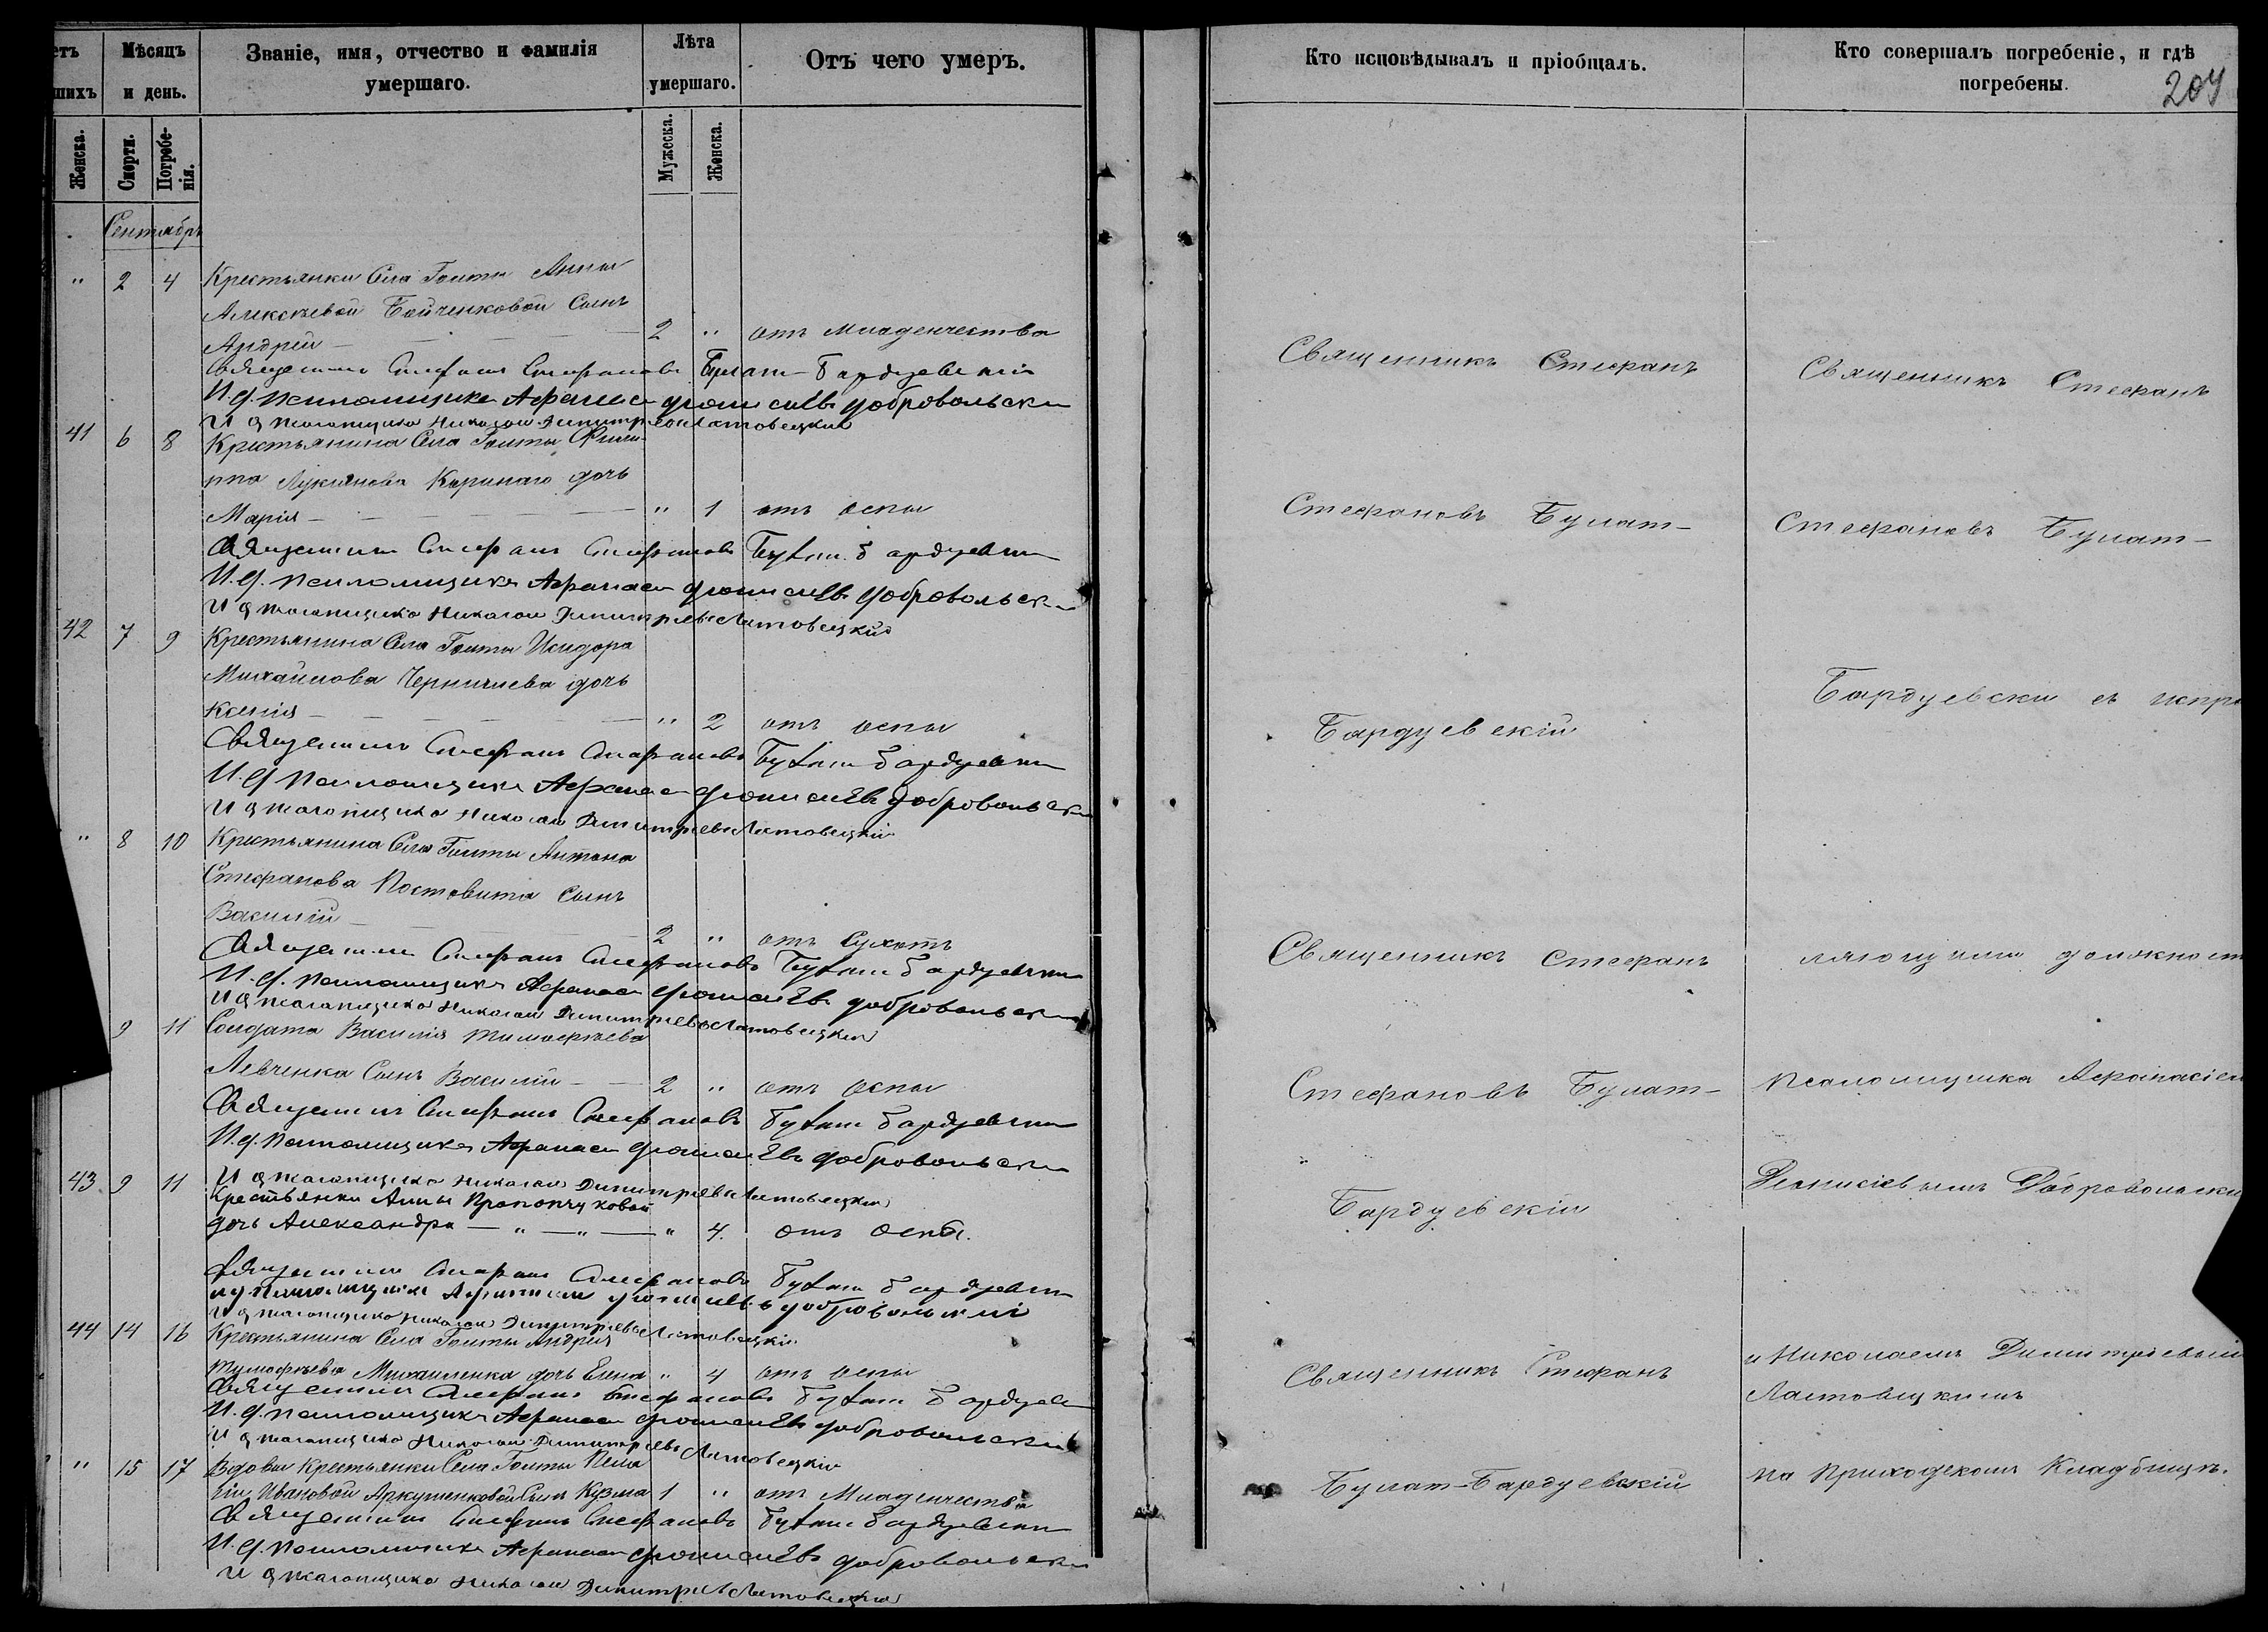 етъ
шихъ
Мѣсяцъ
и день.
Званіе, имя, отчество и фамилія
умершаго.
Лѣта
умершаго.
Отъ чего умеръ.
Кто исповѣдывалъ и пріобщалъ.
Кто совершалъ погребеніе, и гдѣ
погребены.
204
Женска.
Смерти.
Погребе-
нія.
Мужеска.
Женска.
Сентябрь
" 2 4 Крестьянки Села Голты Анны
Алексѣевой Бойченковой Сынъ
Андрей 2 " отъ младенчества
Священникъ Стефанъ Стефановъ Булат-Бардуевскій
И. д. псаломщика Афанасій Діонисіевъ Добровольски
И д псаломщика Николай Димитріевъ Лятовецкій
41 6 8 Крестьянина Села Голты Фили-
ппа Лукьянова Карпнаго дочь
Марія " 1 отъ оспы
Священникъ Стефанъ Стефановъ Булат. Бардуевски
И. д. псаломщика Афанасій Діонисіевъ Добровольски
И д псаломщика Николай Димитріевъ Лятовецкій
42 7 9 Крестьянина Села Голты Исидора
Михайлова Черничиева дочь
Ксенія " 2 отъ оспы
Священникъ Стефанъ Стефановъ Булат Бардуевски
И. д псаломщика Афанасій Діонисіевъ Добровольски
И д псаломщика Николай Димитріевъ Лятовецкій
" 8 10 Крестьянина Села Голты Антона
Стефанова Постовита Сынъ
Василій 2 " отъ Сухотъ
Священникъ Стефанъ Стефановъ Булат Бардуевски
И. д. псаломщика Афанасій Діонисіевъ Добровольски
И д псаломщика Николай Димитріевъ Лятовецкій
9 11 Солдата Василія Тимофѣева
Левченка Сынъ Василій 2 " отъ оспы
Священникъ Стефанъ Стефановъ Булат Бардуевски
И. д. псаломщика Афанасій Діонисіевъ Добровольски
И д псаломщика Николай Димитріевъ Лятовецкій
43 9 11 Крестьянки Анны Прокопчуковой
дочь Александра — " — " — " 4. отъ оспы.
Священникъ Стефанъ Стефановъ Булат Бардуевски
И д псаломщика Афанасій Діонисіевъ Добровольскій
И д псаломщика Николай Димитріевъ Лятовецкій
44 14 16 Крестьянина Села Голты Андрея
Тимофѣева Михаиленка дочь Елена " 4 отъ оспы
Священникъ Стефанъ Стефановъ Булат Бардуев
И. д. псаломщика Афанасій Діонисіевъ Добровольскій
И д псаломщика Николай Димитріевъ Лятовецкій
" 15 17 Вдовы Крестьянки Села Голты Пела
гіи Ивановой Сынъ Кузьма 1 " отъ Младенчества
Священникъ Стефанъ Стефановъ Булат Бардуевски
И. д. псаломщика Афанасій Діонисіевъ Добровольски
И д псаломщика Николай Димитріевъ Лятовецкій
Священникъ Стефанъ
Стефановъ Булат-
Бардуевскій
Священникъ Стефанъ
Стефановъ Булат-
Бардуевскій
Священникъ Стефанъ
Булат-Бардуевскій
Священникъ Стефанъ
Стефановъ Булат-
Бардуевски съ испра
ляющими должност
псаломщика Афанасіем
Діонисіевымъ Добровольски
и Николаемъ Димитріевым
Лятовецкимъ
на приходскомъ Кладбищѣ.